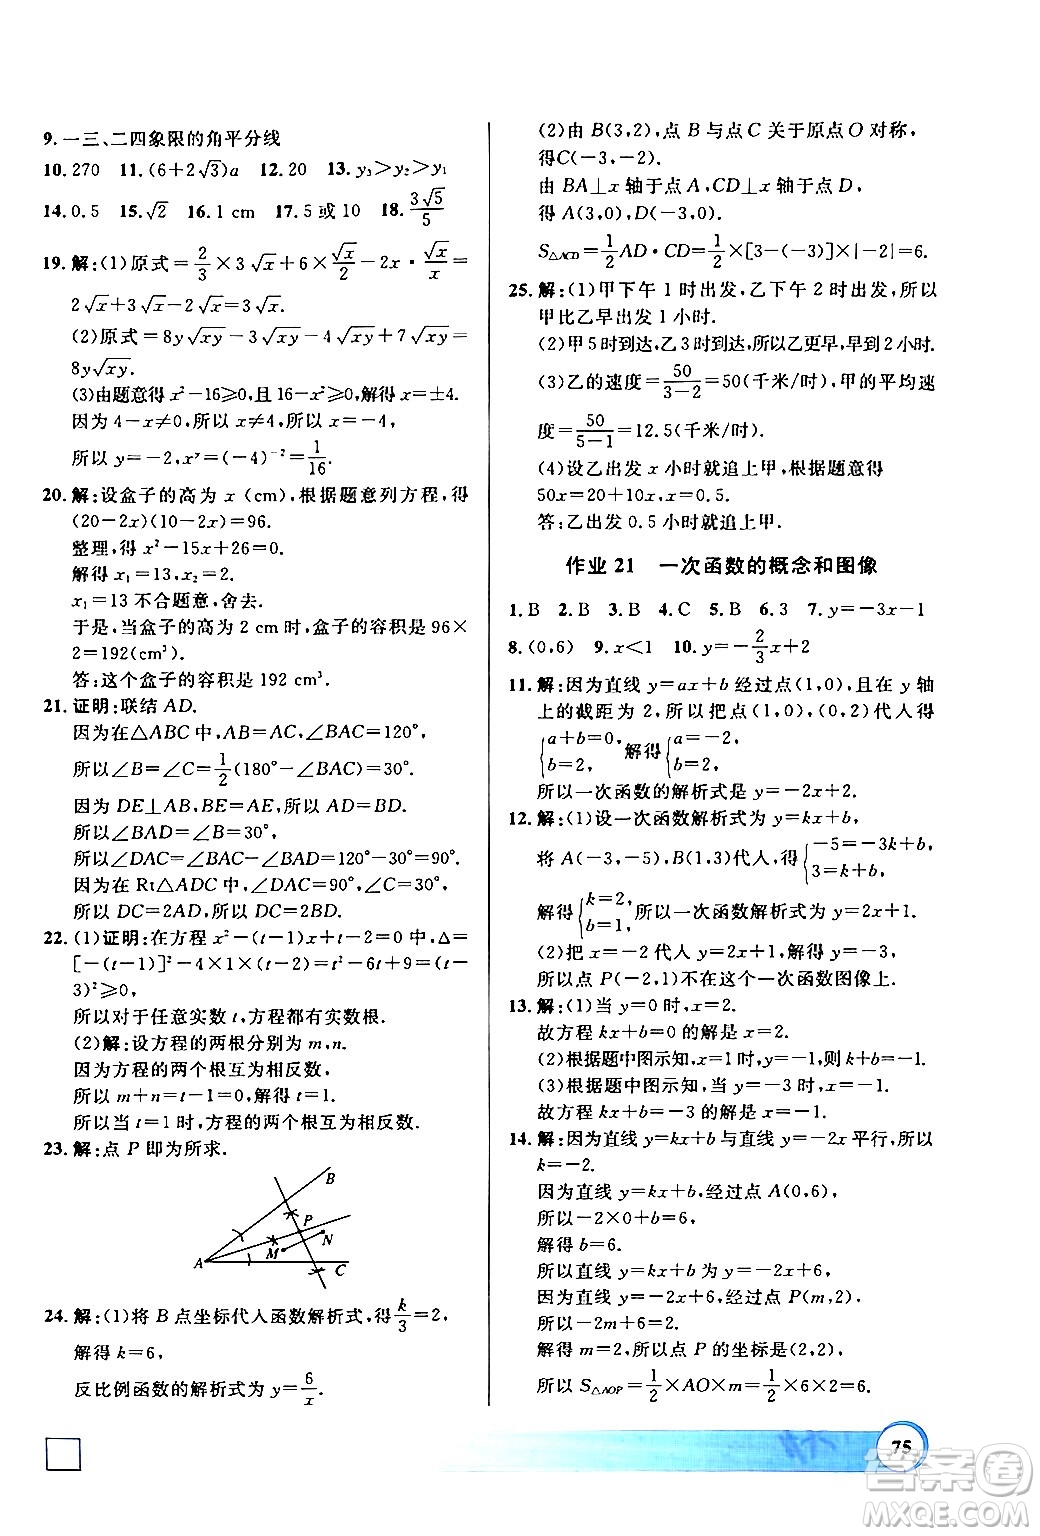 9. 一三、二四象限的角平分线
10. 270　11. (6+2√3)a　12. 20　13. y₃>y₂>y₁
14. 0.5　15. √2　16. 1 cm　17. 5 或 10　18. 3√5/5
19. 解:(1)原式=2/3×3√x+6×√x/2-2x·√x/x=
2√x+3√x-2√x=3√x.
(2)原式=8y√xy-3√xy-4√xy+7√xy=
8y√xy.
(3)由题意得 x²-16≥0,且 16-x²≥0,解得 x=±4.
因为 4-x≠0,所以 x≠4,所以 x=-4,
所以 y=-2,xʸ=(-4)⁻²=1/16.
20. 解:设盒子的高为 x (cm),根据题意列方程,得
(20-2x)(10-2x)=96.
整理,得 x²-15x+26=0.
解得 x₁=13,x₂=2.
x₁=13 不合题意,舍去.
于是,当盒子的高为 2 cm 时,盒子的容积是 96×
2=192(cm³).
答:这个盒子的容积是 192 cm³.
21. 证明:联结 AD.
因为在△ABC 中,AB=AC,∠BAC=120°,
所以∠B=∠C=1/2(180°-∠BAC)=30°.
因为 DE⊥AB,BE=AE,所以 AD=BD.
所以∠BAD=∠B=30°,
所以∠DAC=∠BAC-∠BAD=120°-30°=90°.
因为在 Rt△ADC 中,∠DAC=90°,∠C=30°,
所以 DC=2AD,所以 DC=2BD.
22. (1)证明:在方程 x²-(t-1)x+t-2=0 中,Δ=
[-(t-1)]²-4×1×(t-2)=t²-6t+9=(t-
3)²≥0,
所以对于任意实数 t,方程都有实数根.
(2)解:设方程的两根分别为 m,n.
因为方程的两个根互为相反数,
所以 m+n=t-1=0,解得 t=1.
所以当 t=1 时,方程的两个根互为相反数.
23. 解:点 P 即为所求.
B
P
N
M
A
C
24. 解:(1)将 B 点坐标代人函数解析式,得k/3=2,
解得 k=6,
反比例函数的解析式为 y=6/x.
(2)由 B(3,2),点 B 与点 C 关于原点 O 对称,
得C(-3,-2).
由 BA⊥x 轴于点 A,CD⊥x 轴于点 D,
得 A(3,0),D(-3,0).
S△ACD=1/2AD·CD=1/2×[3-(-3)]×|-2|=6.
25. 解:(1)甲下午 1 时出发,乙下午 2 时出发,所以
甲比乙早出发 1 小时.
(2)甲 5 时到达,乙 3 时到达,所以乙更早,早 2 小时.
(3)乙的速度=50/(3-2)=50(千米/时),甲的平均速
度=50/(5-1)=12.5(千米/时).
(4)设乙出发 x 小时就追上甲,根据题意得
50x=20+10x,x=0.5.
答:乙出发 0.5 小时就追上甲.
作业 21　一次函数的概念和图像
1. B　2. B　3. B　4. C　5. B　6. 3　7. y=-3x-1
8. (0,6)　9. x<1　10. y=-2/3x+2
11. 解:因为直线 y=ax+b 经过点(1,0),且在 y 轴
上的截距为 2,所以把点(1,0),(0,2)代人得
{a+b=0, b=2, 解得{a=-2, b=2,
所以一次函数的解析式是 y=-2x+2.
12. 解:(1)设一次函数解析式为 y=kx+b,
将 A(-3,-5),B(1,3)代人,得{-5=-3k+b, 3=k+b,
解得{k=2, b=1,所以一次函数解析式为 y=2x+1.
(2)把 x=-2 代人 y=2x+1,得 y=-3≠1,
所以点 P(-2,1)不在这个一次函数图像上.
13. 解:(1)当 y=0 时,x=2.
故方程 kx+b=0 的解是 x=2.
(2)根据题中图示知,x=1时,y=-1,则 k+b=-1.
(3)根据题中图示知,当 y=-3 时,x=-1.
故方程 kx+b=-3 的解是 x=-1.
14. 解:因为直线 y=kx+b 与直线 y=-2x 平行,所以
k=-2.
因为直线 y=kx+b 经过点 A(0,6),
所以-2×0+b=6,
解得 b=6.
所以直线 y=kx+b 为 y=-2x+6.
因为直线 y=-2x+6 经过点 P(m,2),
所以-2m+6=2,
解得 m=2,所以点 P 的坐标是(2,2),
所以 S△AOP=1/2×AO×m=1/2×6×2=6.
75
答案圈
MXQE.COM